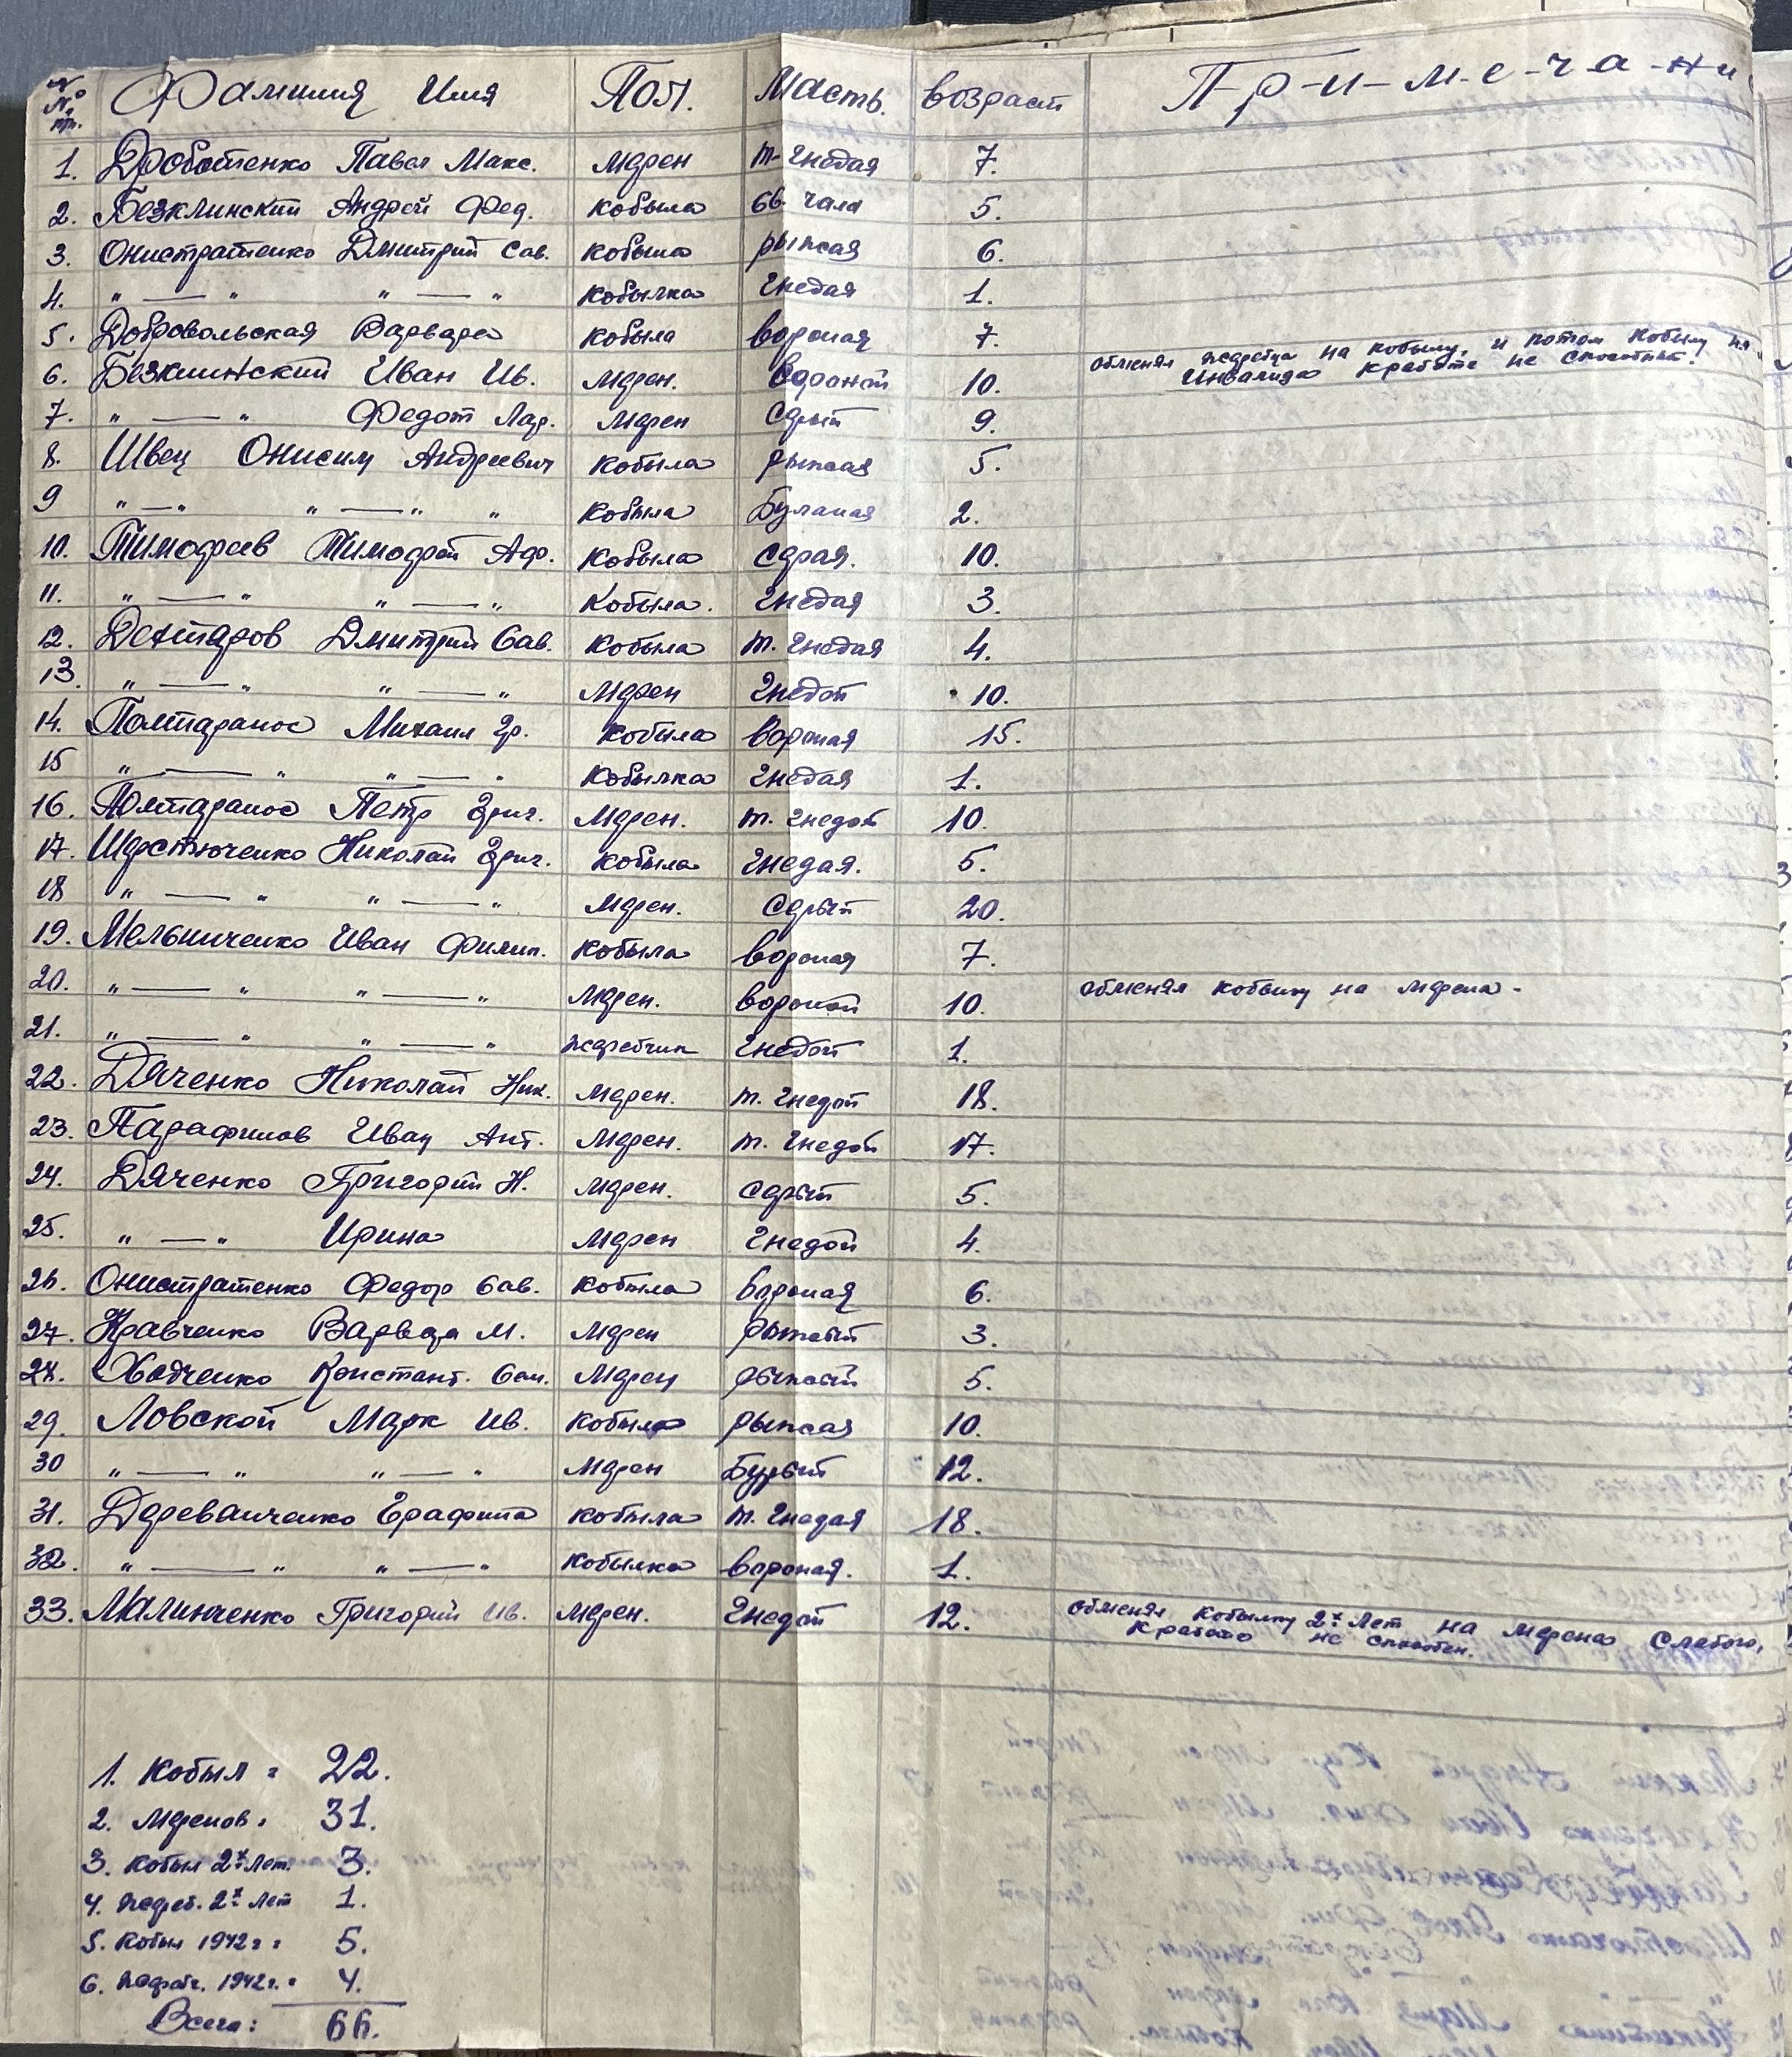 № № пп. Фамилия Имя Пол. Масть. возраст П-р-и-м-е-ч-а-н-и
1. Дроботенко Павел Макс. мерен т-гнедая 7.
2. Безклинский Андрей Фед. кобыла св. чала 5.
3. Онистратенко Дмитрий Сав. кобыла рыжая 6.
4. " — " " — " кобылка гнедая 1.
5. Добровольская Варвара кобыла вороная 7.
6. Безклинский Иван Ив. мерен. вороной 10. обменял жеребца на кобылу, и потом кобылу на
Инвалида к работе не способный.
7. " — " Федот Лар. мерен серый 9.
8. Швец Онисим Андреевич кобыла рыжая 5.
9 " — " " — " " кобыла Буланая 2.
10. Тимофеев Тимофей Аф. кобыла серая. 10.
11. " — " " — " кобыла. гнедая 3.
12. Дехтяров Дмитрий Сав. кобыла т. гнедая 4.
13. " — " " — " мерен гнедой 10.
14. Полтаранос Михаил Гр. кобыла вороная 15.
15 " — " " — " кобылка гнедая 1.
16. Полтаранос Петр Григ. мерен. т. гнедой 10.
17. Шерстюченко Николай Григ. кобыла гнедая. 5.
18 " — " " — " мерен. серый 20.
19. Мельниченко Иван Филип. кобыла вороная 7.
20. " — " " — " мерен. вороной 10. обменял кобылу на мерена.
21. " — " " — " жеребчик гнедой 1.
22. Дяченко Николай Ник. мерен. т. гнедой 18.
23. Парафилов Иван Ант. мерен. т. гнедой 17.
24. Дяченко Григорий Н. мерен. серый 5.
25. " — " Ирина мерен гнедой 4.
26. Онистратенко Федор Сав. кобыла вороная 6.
27. Кравченко Варвара М. мерен рыжый 3.
28. Ходченко Констант. Сем. мерен рыжый 5.
29. Ловской Марк Ив. кобыла рыжая 10.
30 " — " " — " мерен Бурый 12.
31. Дереванченко Ерафина кобыла т. гнедая 18.
32. " — " " — " кобылка вороная. 1.
33. Малинченко Григорий Ив. мерен. гнедой 12. обменял кобылку 2х лет на мерена слабого,
к работе не способен.
1. Кобыл = 22.
2. меренов = 31.
3. Кобыл 2х лет. 3.
4. жереб. 2х лет 1.
5. Кобыл 1942 г = 5.
6. жеребч. 1942 г. = 4.
Всего: 66.